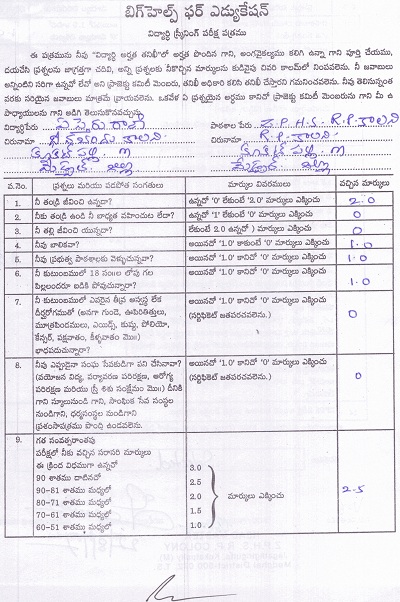 బిగ్‌హెల్ప్ ఫర్ ఎడ్యుకేషన్
విద్యార్థి స్క్రీనింగ్ పరీక్ష పత్రము
ఈ పత్రమును నీవు "విద్యార్థి అర్హత తనిఖీ"లో అర్హత పొందిన గాని, అంగవైకల్యము కలిగి ఉన్నా గాని పూర్తి చేయము,
దయచేసి ప్రశ్నలను జాగ్రత్తగా చదివి, అన్ని ప్రశ్నలకు నీకొచ్చిన మార్కులను కుడివైపు చివరి కాలమ్‌లో నింపవలెను. నీ జవాబులు
అన్నింటిని సరిగా ఉన్నా లేదో అని ప్రాజెక్టు కమిటీ మెంబరు, తనిఖీ అధికారి కలిసి తనిఖీ చేస్తారని గమనించవలెను. నీవు తెలిసినంత
వరకు సరియైన జవాబులు మాత్రమే వ్రాయవలెను. ఒకవేళ ఏ ప్రశ్నయైన అర్థము కానిచో ప్రాజెక్టు కమిటీ మెంబరును గాని మీ ఉ
పాధ్యాయులను గాని అడిగి తెలుసుకొనవచ్చును
విద్యార్థిపేరు పాఠశాల పేరు: Z.P.H.S. R.P. కాలని
చిరునామా చిరునామా: R.P. కాలని
వ.నెం. ప్రశ్నలు మరియు పదపోత సంగతులు మార్కుల వివరములు వచ్చిన మార్కులు
1. నీ తండ్రి జీవించి ఉన్నడా? ఉన్నచో '0' లేకుంటే '2.0' మార్కులు ఎక్కించు 2.0
2. నీకు తండ్రి ఉండి నీ బాధ్యత వహించుట లేదా? ఉన్నచో '1' లేకుంటే '0' మార్కులు ఎక్కించు 0
3. నీ తల్లి జీవించి యున్నదా? లేకుంటే 2.0 ఉన్నచో ) మార్కులు ఎక్కించు 0
4. నీవు బాలికవా? అయినచో '1.0' కాకుంటే '0' మార్కులు ఎక్కించు 1.0
5. నీవు ప్రభుత్వ పాఠశాలకు వెళ్ళుచున్నావా? అయినచో '1.0' కానిచో '0' మార్కులు ఎక్కించు 1.0
6. నీ కుటుంబములో 18 సం॥ల లోపు గల అయినచో '1.0' కానిచో '0' మార్కులు ఎక్కించు 1.0
పిల్లలందరూ బడికి పోవుచున్నారా?
7. నీ కుటుంబములో ఎవరైన తీవ్ర అస్వస్థ లేక అయినచో '1.0' కానిచో '0' మార్కులు ఎక్కించు 0
దీర్ఘరోగముతో (అనగా గుండె, ఊపిరితిత్తులు, (సర్టిఫికెట్ జతపరచవలెను.)
మూత్రపిండములు, ఎయిడ్స్, కుష్ఠు, పోలియో,
కేన్సర్, పక్షవాతం, కీళ్ళవాతం మొ॥)
భాధపడుచున్నారా?
8. నీవు ఎప్పుడైనా సంఘ సేవకుడిగా పని చేసినావా? అయినచో '1.0' కానిచో '0' మార్కులు ఎక్కించు 0
(వయోజన విద్య, పర్యావరణ పరిరక్షణ, ఆరోగ్య (సర్టిఫికెట్ జతపరచవలెను.)
పరిరక్షణ మరియు స్త్రీ శిశు సంక్షేమం మొ॥) దీనికి
గాని స్కూలునుండి గాని, సాంఘిక సేవ సంస్థల
నుండిగాని, ధర్మసంస్థల నుండిగాని
ప్రశంసాపత్రము పొంది ఉండవలెను.
9. గత సంవత్సరాంతపు
పరీక్షలో నీకు వచ్చిన సరాసరి మార్కులు
ఈ క్రింద విధముగా ఉన్నచో 3.0
90 శాతము దాటినచో 2.5
90-81 శాతము మధ్యలో 2.0 మార్కులు ఎక్కించు 2.5
80-71 శాతము మధ్యలో 1.5
70-61 శాతము మధ్యలో 1.0
60-51 శాతము మధ్యలో